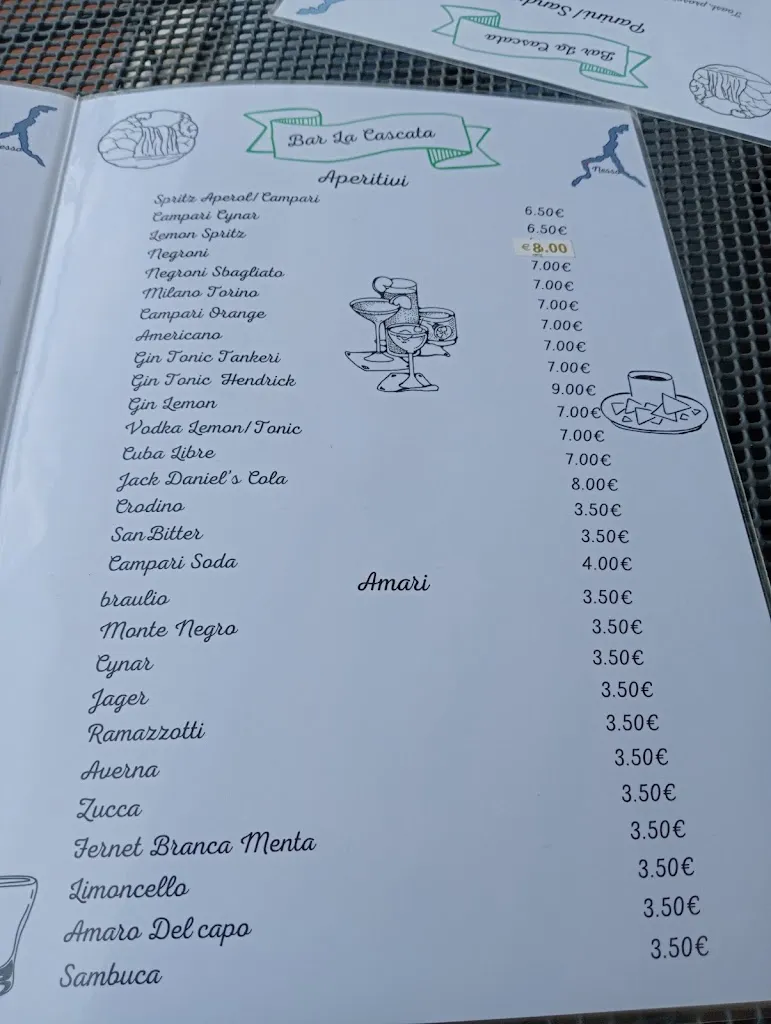 Bar La Cascata
Nesso
Aperitivi
Spritz Aperol/Campari 6.50€
Campari Cynar 6.50€
Lemon Spritz €8.00
Negroni 7.00€
Negroni Sbagliato 7.00€
Milano Torino 7.00€
Campari Orange 7.00€
Americano 7.00€
Gin Tonic Tankeri 7.00€
Gin Tonic Hendrick 9.00€
Gin Lemon 7.00€
Vodka Lemon/Tonic 7.00€
Cuba Libre 7.00€
Jack Daniel's Cola 8.00€
Crodino 3.50€
SanBitter 3.50€
Campari Soda 4.00€
Amari
braulio 3.50€
Monte Negro 3.50€
Cynar 3.50€
Jager 3.50€
Ramazzotti 3.50€
Averna 3.50€
Zucca 3.50€
Fernet Branca Menta 3.50€
Limoncello 3.50€
Amaro Del capo 3.50€
Sambuca 3.50€
Bar La Cascata
Panini/